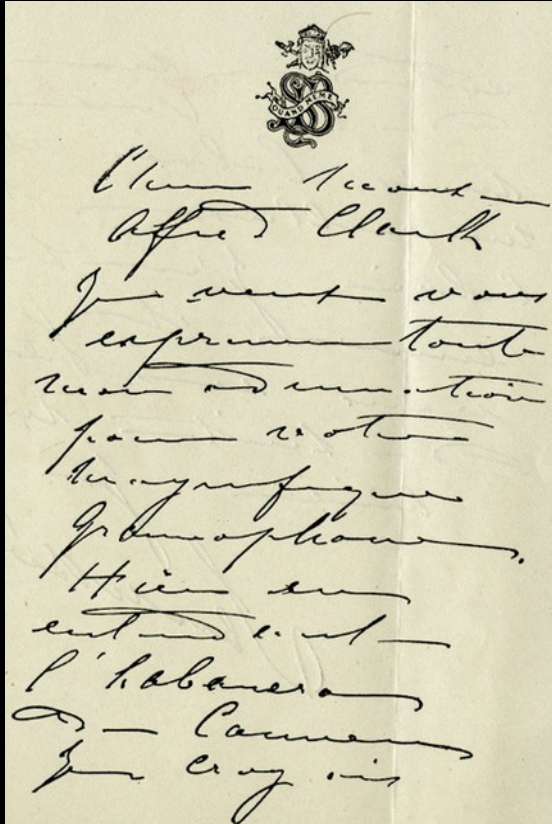 QUAND MÊME
Cher Monsieur
Alfred Clark
Je veux vous
exprimer toute
mon admiration
pour votre
magnifique
Gramophone.
Hier en
entendant
l'habanera
de Carmen
Je croyais